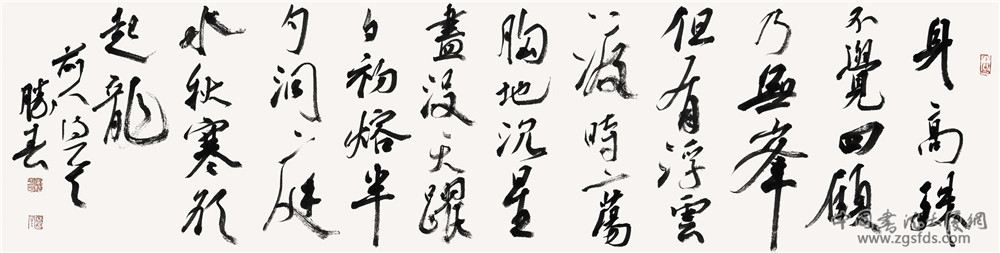 身高殊
不覺四顧
乃無峯
但有浮雲
度時〻一蕩
胸地沉星
盡没天躍
日初熔半
勺洞庭
水秋寒欲
起龍
前人詩
勝春
www.zgsfds.com